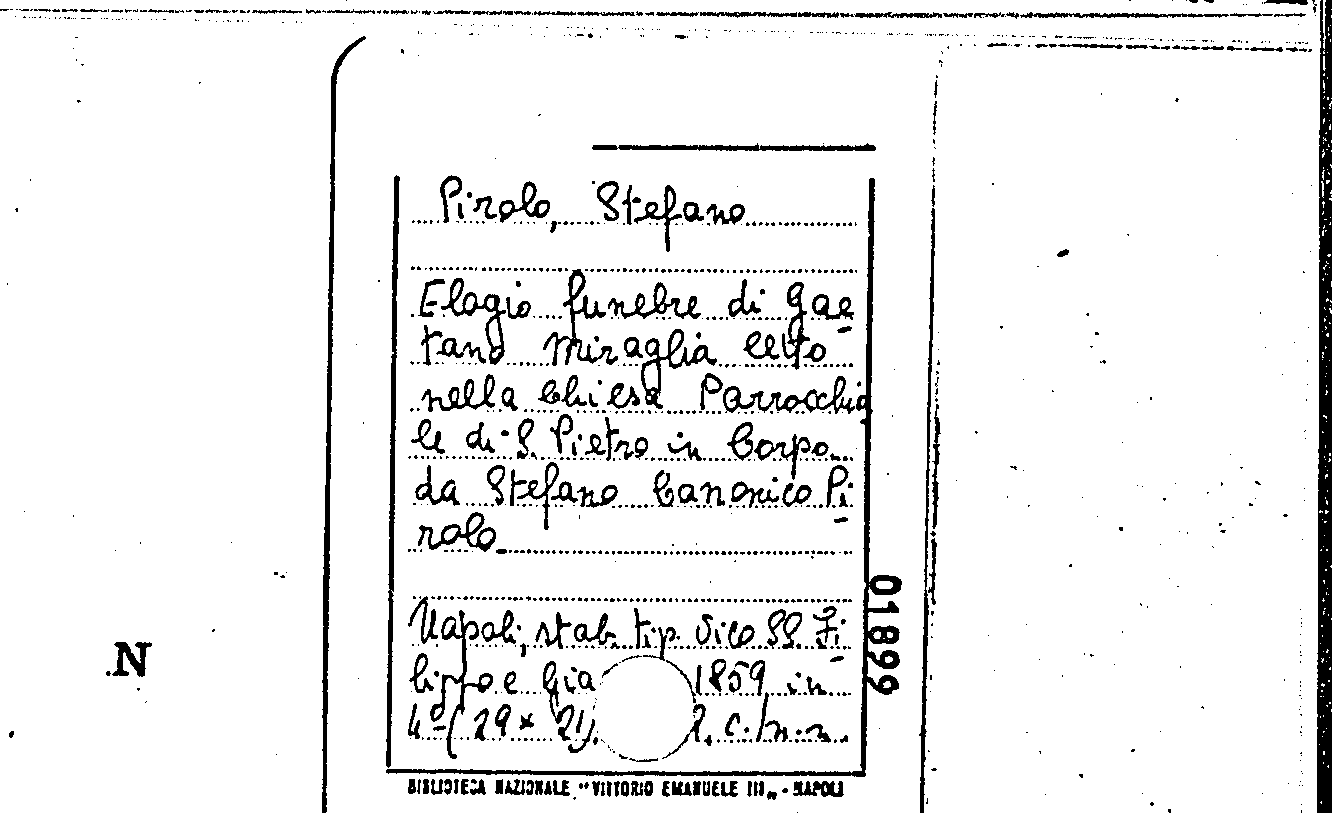 Pirolo, Stefano
Elogio funebre di Gae-
tano Miraglia letto
nella Chiesa Parrocchia
le di S. Pietro in Corpo
da Stefano Canonico Pi-
rolo.
Napoli, stab. tip. Vico SS. Fi-
lippo e Gia 1859, in
4º (29 x 21). 2. c. n.n.
01899
N
BIBLIOTECA NAZIONALE "VITTORIO EMANUELE III„ - NAPOLI